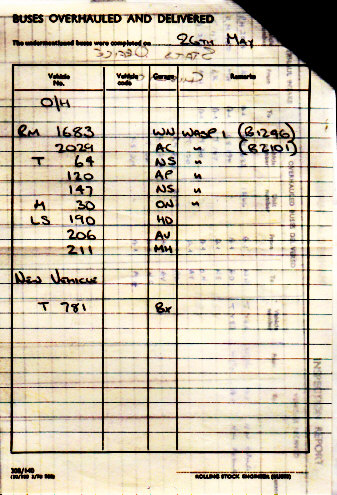 BUSES OVERHAULED AND DELIVERED
The undermentioned buses were completed on 26TH MAY
Vehicle No. Vehicle code Garage Remarks
O/H
RM 1683 WN WASP 1 (B1246)
2029 AC " (B2101)
T 64 NS "
120 AP "
147 NS "
M 30 ON "
LS 190 HD
206 AV
211 MH
NEW VEHICLE
T 781 BX
ROLLING STOCK ENGINEER (BUSES)
INSPECTION REPORT